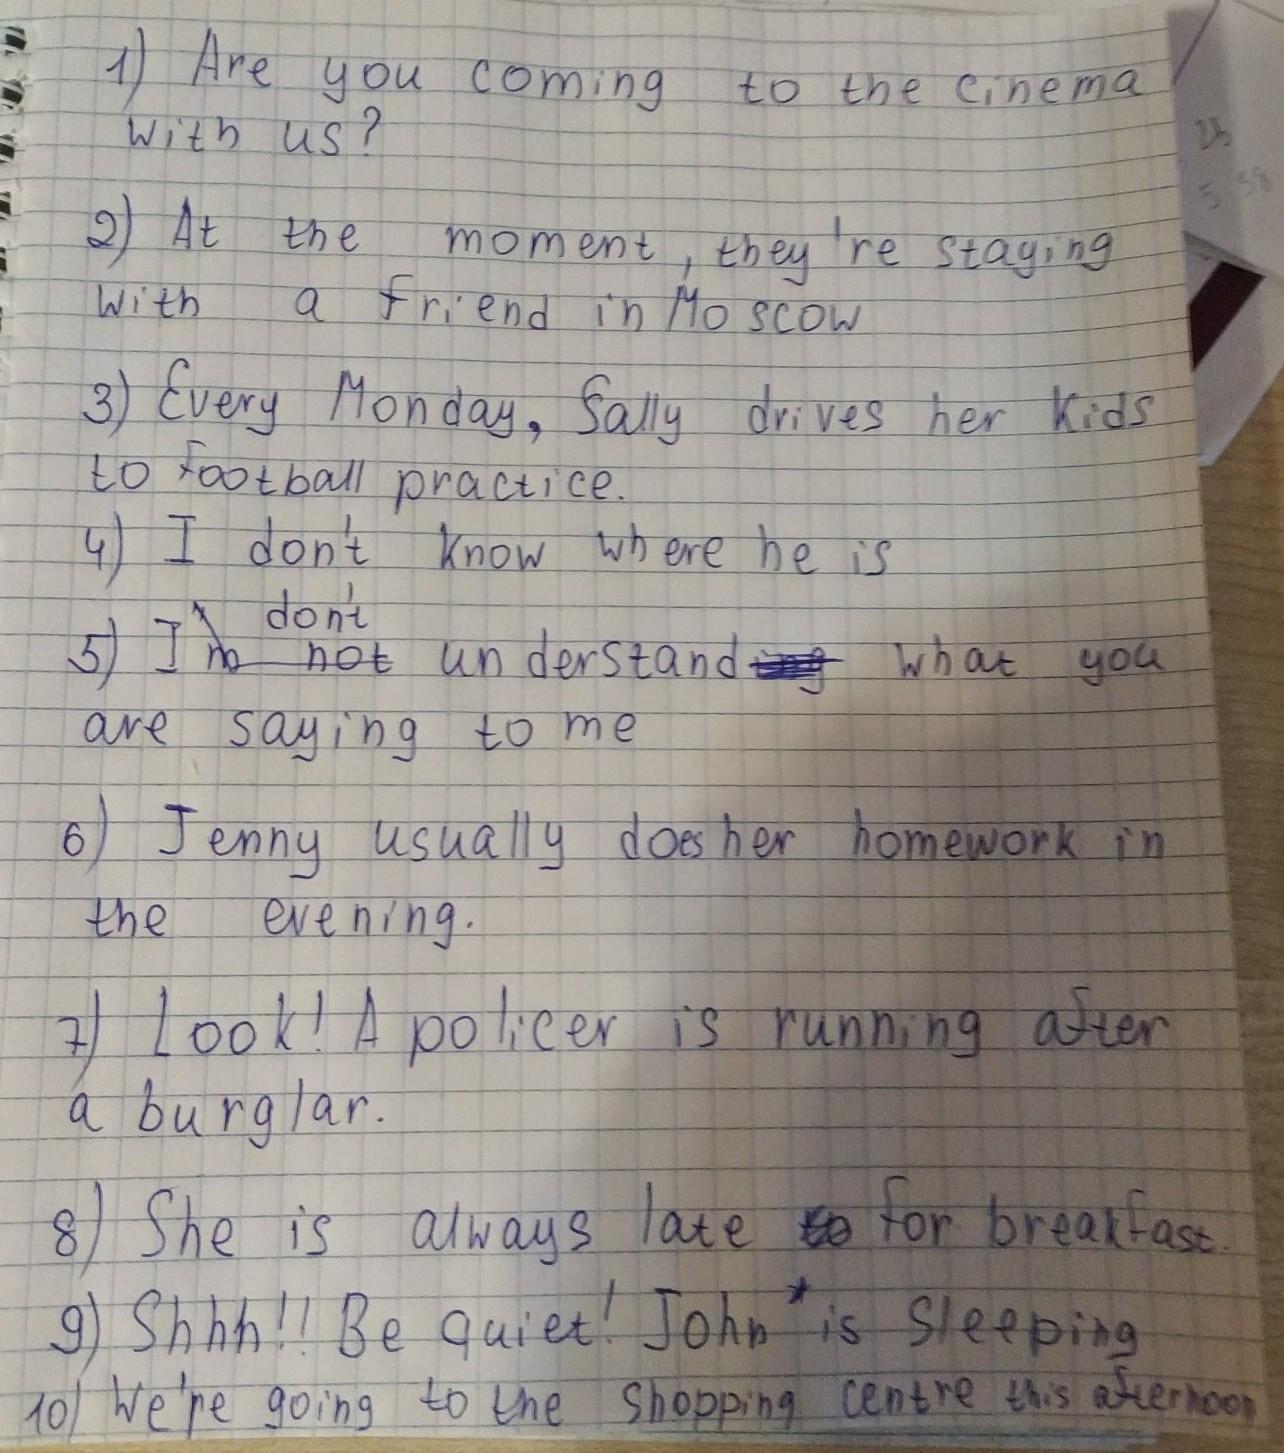 1) Are you coming to the cinema
with us?
2) At the moment, they're staying
with a friend in Moscow
3) Every Monday, Sally drives her kids
to football practice.
4) I don't know where he is
don't
5) I'm not understanding what you
are saying to me
6) Jenny usually does her homework in
the evening.
7) Look! A policer is running after
a burglar.
8) She is always late to for breakfast.
9) Shhh!! Be quiet! John is sleeping
10) We're going to the shopping centre this afternoon